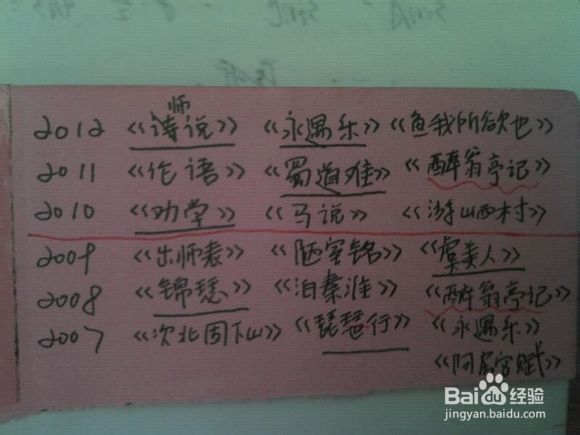 师
2012 《诗说》 《永遇乐》 《鱼我所欲也》
2011 《论语》 《蜀道难》 《醉翁亭记》
2010 《劝学》 《马说》 《游山西村》
2009 《出师表》 《陋室铭》 《虞美人》
2008 《锦瑟》 《泊秦淮》 《醉翁亭记》
2007 《次北固下山》 《琵琶行》 《永遇乐》
《阿房宫赋》
Baidu 经验
jingyan.baidu.com